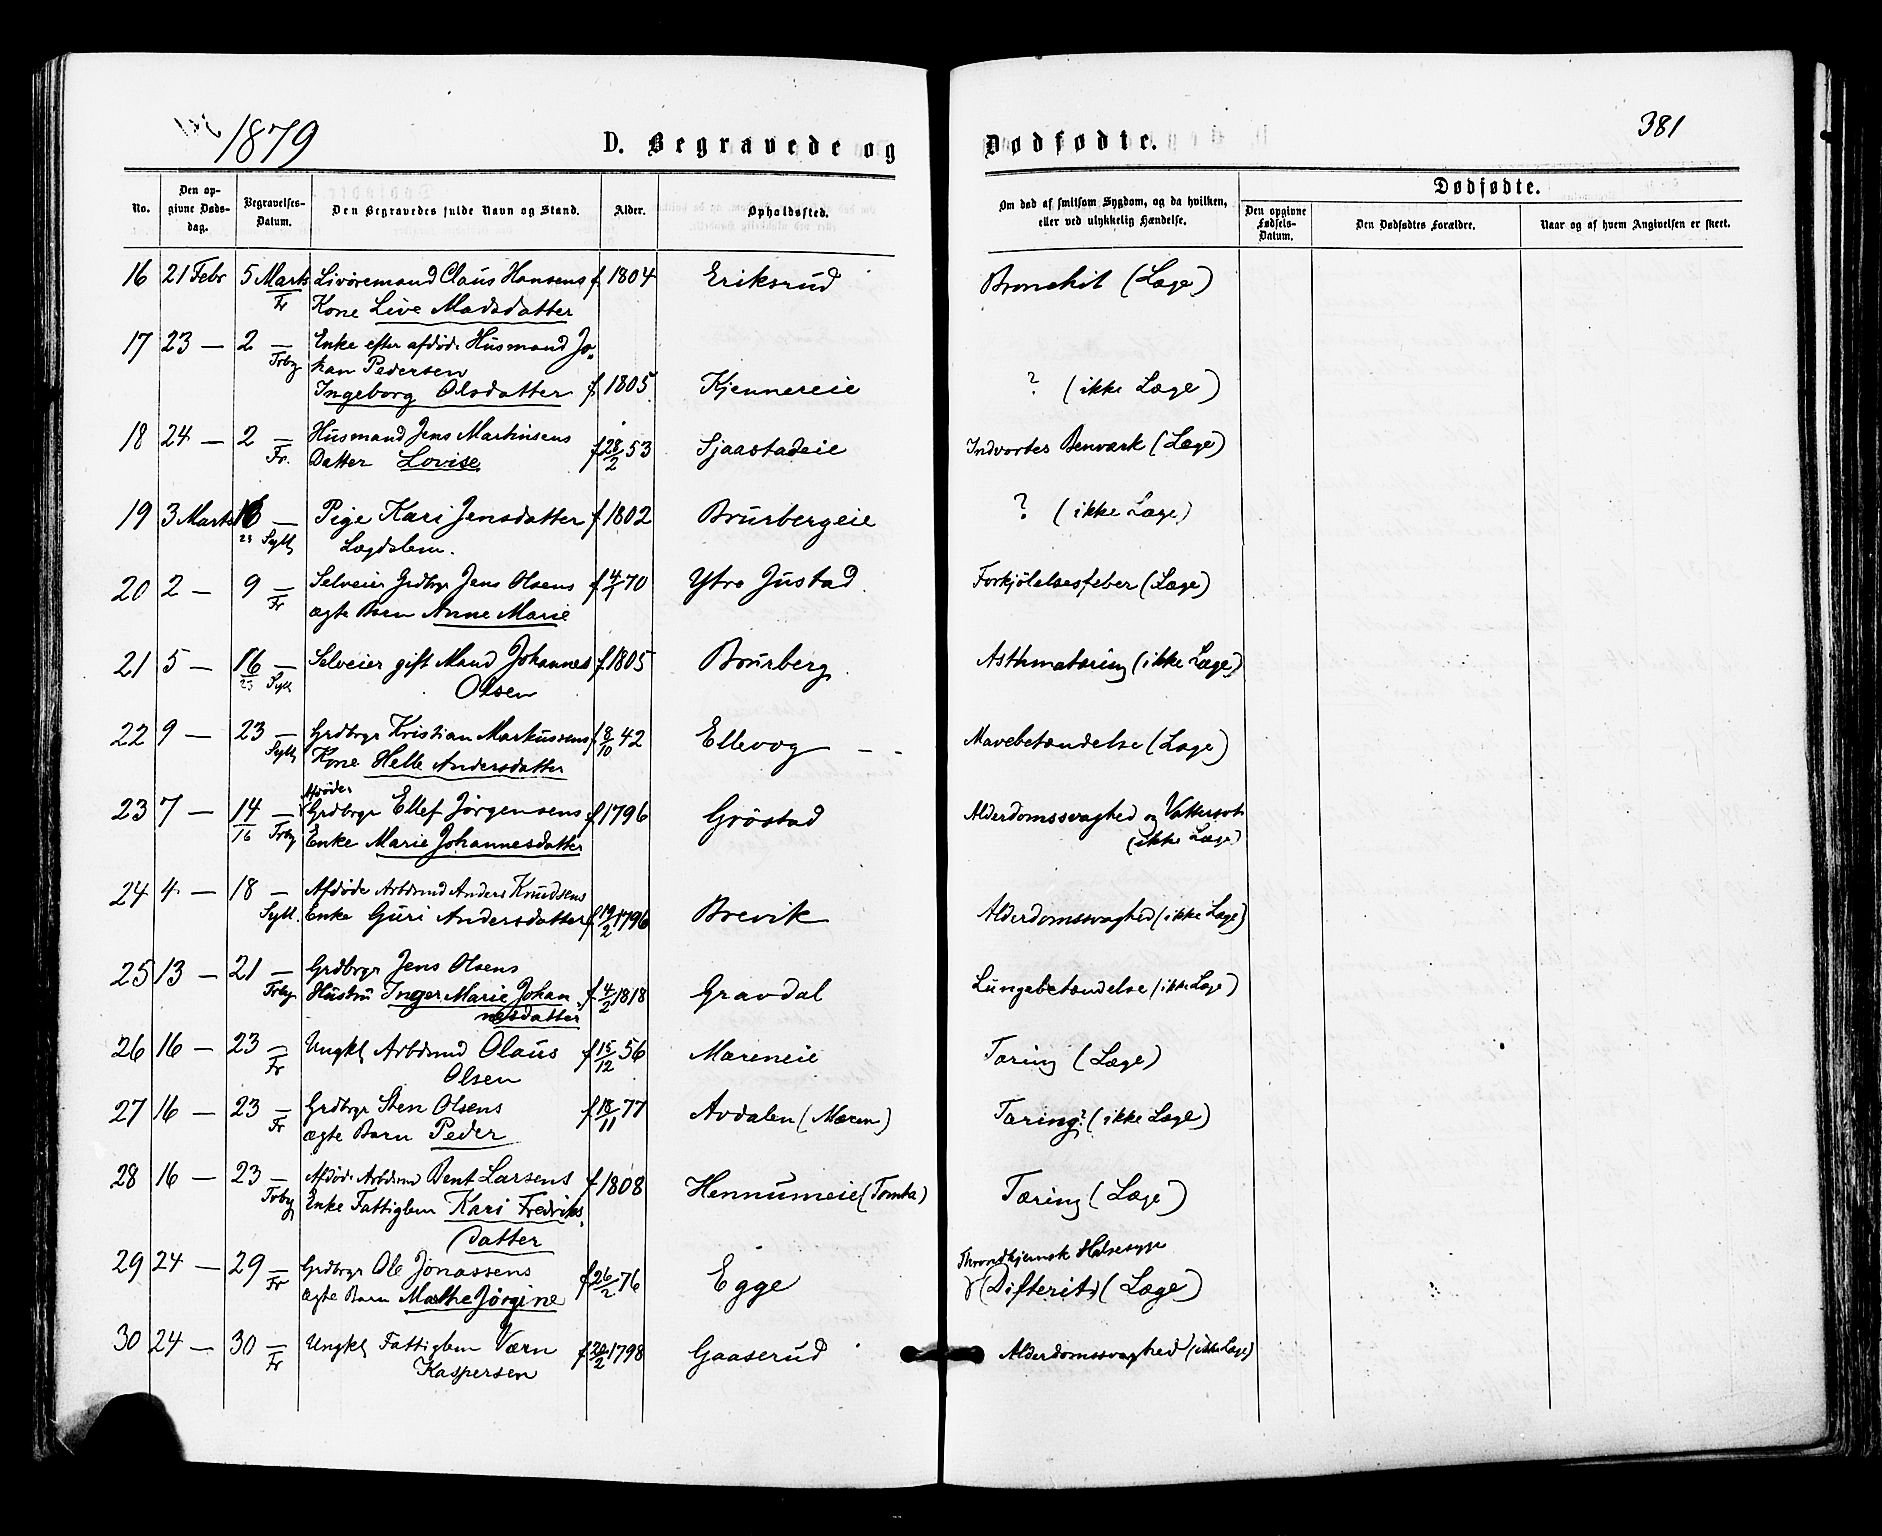 1879
D. Begravede og
Dødfødte.
381
No.
Den op-
givne Døds-
dag.
Begravelses-
Datum.
Den Begravedes fulde Navn og Stand.
Alder.
Opholdssted.
Om død af smitsom Sygdom, og da hvilken,
eller ved ulykkelig Hændelse.
Dødfødte.
Den opgivne
Fødsels-
Datum.
Den Dødfødtes Forældre.
Naar og af hvem Angivelsen er skeet.
16 21 Febr 5 Marts Livöremand Claus Hansens f 1804 Eriksrud Bronchit (Læge)
Fr Kone Live Madsdatter
17 23 — 2 — Enke efter afdöde Husmand Jo-
Frby han Pedersen
Ingeborg Olsdatter f 1805 Kjennereie ? (ikke Læge)
18 24 — 2 — Husmand Jens Martinsens
Fr. Datter Lovise f 28/2 53 Sjaastadeie Indvortes Benværk (Læge)
19 3 Marts 16 — Pige Kari Jensdatter f 1802 Brurbergeie ? (ikke Læge)
23 Syll Lægdslem.
20 2 — 9 — Selveier Grdbrgr Jens Olsens f 4/1 70 Ytre Justad Forkjölelsesfeber (Læge)
Fr ægte Barn Anne Marie
21 5 — 16 — Selveier gift Mand Johannes f 1805 Brurberg Asthmatæring (ikke Læge)
23 Syll Olsen
22 9 — 23 — Grdbrgr Kristian Markussens f 8/10 42 Ellevog — - Mavebetændelse (Læge)
Syll Kone Helle Andersdatter
Afdöde
23 7 — 14 — Grdbrgr Ellef Jörgensens f 1796 Gröstad Alderdomssvaghed og Vattersot
16 Frby Enke Marie Johannesdatter (ikke Læge)
24 4 — 18 — Afdöde Arbdsmd Anders Knudsens
Syll. Enke Guri Andersdatter f 19/2 1796 Brevik Alderdomssvaghed (ikke Læge)
25 13 — 21 — Grdbrgr Jens Olsens
Frby Hustru Inger Marie Johan- f 4/2 1818 Gravdal Lungebetændelse (ikke Læge)
nesdatter
26 16 — 23 — Ungkl Arbdsmd Olaus f 15/12 56 Mareneie Tæring (Læge)
Fr Olsen
27 16 — 23 — Grdbrgr Sten Olsens f 18/11 77 Avdalen (Mæren) Tæring? (ikke Læge)
Fr ægte Barn Peder
28 16 — 23 — Afdöde Arbdsmd Bent Larsens f 1808 Hennumeie (Tomta) Tæring (Læge)
Frby Enke Fattiglem Kari Fredriks-
datter
29 24 — 29 — Grdbrgr Ole Jonassens f 26/2 76 Egge Throndhjemsk Halsesyge
Fr ægte Barn Mathe Jörgine (Difterit) (Læge)
30 24 — 30 — Ungkl Fattiglem Værn f 20/2 1798 Gaaserud Alderdomssvaghed (ikke Læge)
Fr Kaspersen